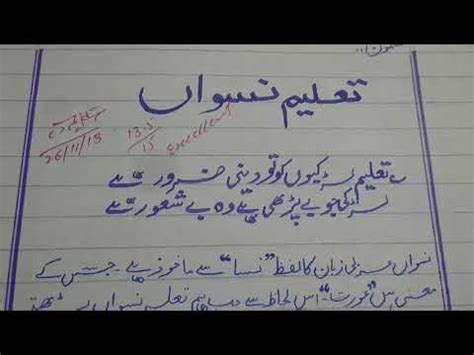 تعلیم نسواں
26/11/18
13.5
15
Excellent
تعلیم لڑکیوں کو تو دینی ضرور ہے
لڑکی جو بے پڑھی ہے وہ بے شعور ہے
نسواں عربی زبان کا لفظ "نسا" سے ماخوذ ہے جس کے
معنی ہیں "عورت" اس لحاظ سے جب ہم تعلیم نسواں